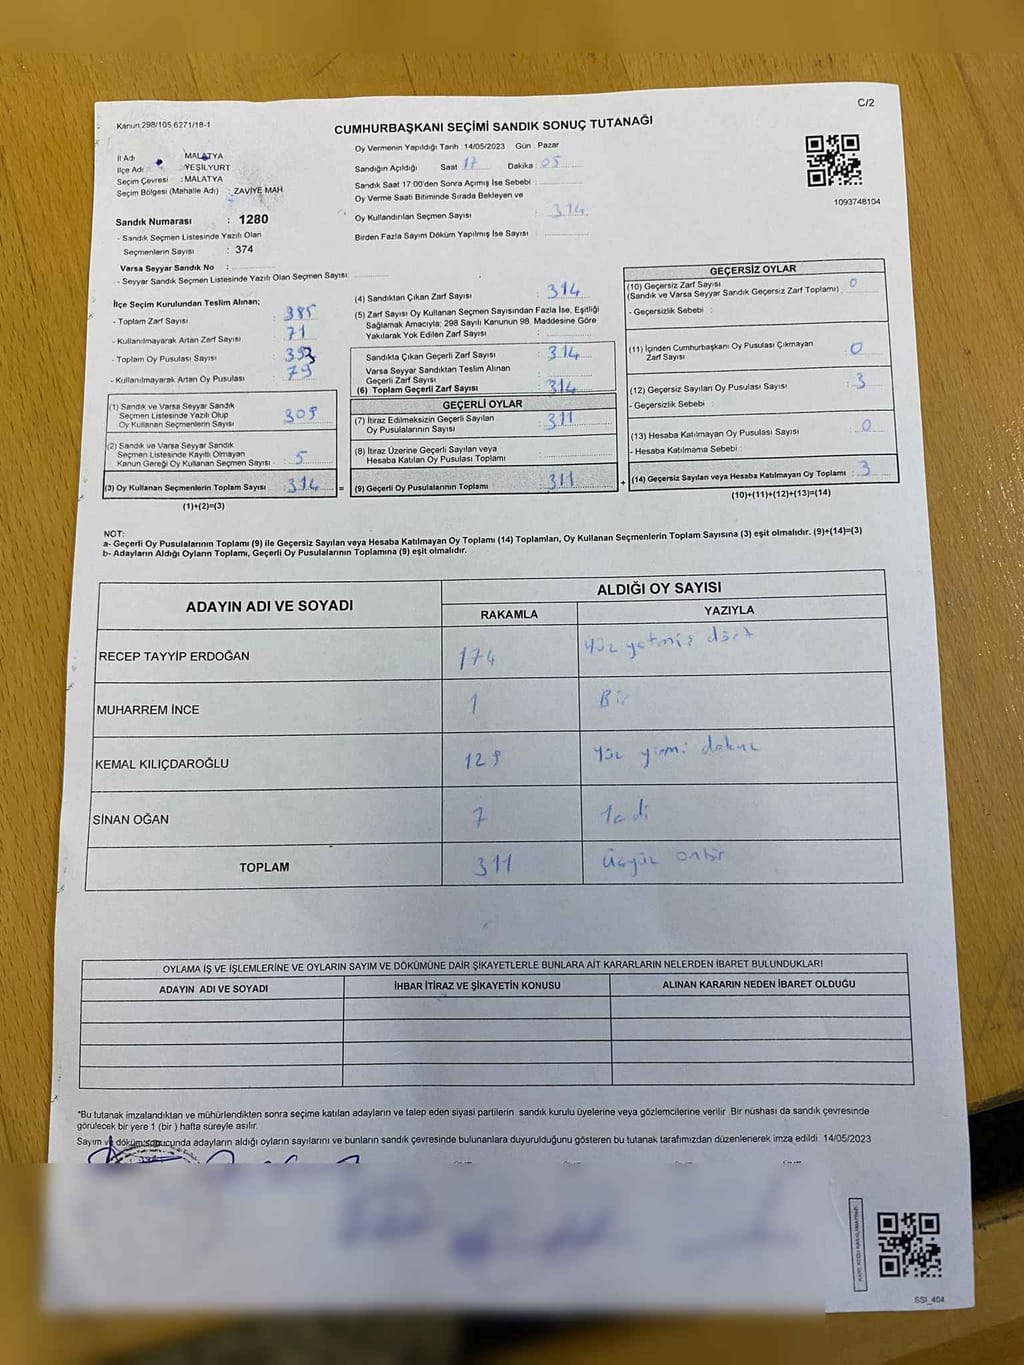 C/2
Kanun 298/105.6271/18-1
CUMHURBAŞKANI SEÇİMİ SANDIK SONUÇ TUTANAĞI
İl Adı : MALATYA
İlçe Adı : YEŞİLYURT
Seçim Çevresi : MALATYA
Seçim Bölgesi (Mahalle Adı) : ZAVİYE MAH.
Sandık Numarası : 1280
- Sandık Seçmen Listesinde Yazılı Olan
Seçmenlerin Sayısı : 374
Varsa Seyyar Sandık No :
- Seyyar Sandık Seçmen Listesinde Yazılı Olan Seçmen Sayısı:
Oy Vermenin Yapıldığı Tarih : 14/05/2023 Gün : Pazar
Sandığın Açıldığı Saat 17 Dakika 05
Sandık Saat 17:00'den Sonra Açımış İse Sebebi :
Oy Verme Saati Bitiminde Sırada Bekleyen ve
Oy Kullandırılan Seçmen Sayısı : 314
Birden Fazla Sayım Döküm Yapılmış İse Sayısı :
1093748104
İlçe Seçim Kurulundan Teslim Alınan;
- Toplam Zarf Sayısı : 385
- Kullanılmayarak Artan Zarf Sayısı : 71
- Toplam Oy Pusulası Sayısı : 393
- Kullanılmayarak Artan Oy Pusulası : 79
(1) Sandık ve Varsa Seyyar Sandık
Seçmen Listesinde Yazılı Olup
Oy Kullanan Seçmenlerin Sayısı : 309
(2) Sandık ve Varsa Seyyar Sandık
Seçmen Listesinde Kayıtlı Olmayan
Kanun Gereği Oy Kullanan Seçmen Sayısı : 5
(3) Oy Kullanan Seçmenlerin Toplam Sayısı : 314
(1)+(2)=(3)
(4) Sandıktan Çıkan Zarf Sayısı : 314
(5) Zarf Sayısı Oy Kullanan Seçmen Sayısından Fazla İse, Eşitliği
Sağlamak Amacıyla; 298 Sayılı Kanunun 98. Maddesine Göre
Yakılarak Yok Edilen Zarf Sayısı :
Sandıkta Çıkan Geçerli Zarf Sayısı : 314
Varsa Seyyar Sandıktan Teslim Alınan
Geçerli Zarf Sayısı :
(6) Toplam Geçerli Zarf Sayısı : 314
=
GEÇERLİ OYLAR
(7) İtiraz Edilmeksizin Geçerli Sayılan
Oy Pusulalarının Sayısı : 311
(8) İtiraz Üzerine Geçerli Sayılan veya
Hesaba Katılan Oy Pusulası Toplamı :
(9) Geçerli Oy Pusulalarının Toplamı : 311
+
GEÇERSİZ OYLAR
(10) Geçersiz Zarf Sayısı : 0
(Sandık ve Varsa Seyyar Sandık Geçersiz Zarf Toplamı)
- Geçersizlik Sebebi :
(11) İçinden Cumhurbaşkanı Oy Pusulası Çıkmayan
Zarf Sayısı : 0
(12) Geçersiz Sayılan Oy Pusulası Sayısı : 3
- Geçersizlik Sebebi :
(13) Hesaba Katılmayan Oy Pusulası Sayısı : 0
- Hesaba Katılmama Sebebi :
(14) Geçersiz Sayılan veya Hesaba Katılmayan Oy Toplamı : 3
(10)+(11)+(12)+(13)=(14)
NOT:
a- Geçerli Oy Pusulalarının Toplamı (9) ile Geçersiz Sayılan veya Hesaba Katılmayan Oy Toplamı (14) Toplamları, Oy Kullanan Seçmenlerin Toplam Sayısına (3) eşit olmalıdır. (9)+(14)=(3)
b- Adayların Aldığı Oyların Toplamı, Geçerli Oy Pusulalarının Toplamına (9) eşit olmalıdır.
ADAYIN ADI VE SOYADI
ALDIĞI OY SAYISI
RAKAMLA YAZIYLA
RECEP TAYYİP ERDOĞAN 174 Yüz yetmiş dört
MUHARREM İNCE 1 Bir
KEMAL KILIÇDAROĞLU 129 Yüz yirmi dokuz
SİNAN OĞAN 7 Yedi
TOPLAM 311 Üçyüz onbir
OYLAMA İŞ VE İŞLEMLERİNE VE OYLARIN SAYIM VE DÖKÜMÜNE DAİR ŞİKAYETLERLE BUNLARA AİT KARARLARIN NELERDEN İBARET BULUNDUKLARI
ADAYIN ADI VE SOYADI İHBAR İTİRAZ VE ŞİKAYETİN KONUSU ALINAN KARARIN NEDEN İBARET OLDUĞU
*Bu tutanak imzalandıktan ve mühürlendikten sonra seçime katılan adayların ve talep eden siyasi partilerin sandık kurulu üyelerine veya gözlemcilerine verilir. Bir nüshası da sandık çevresinde
görülecek bir yere 1 (bir ) hafta süreyle asılır.
Sayım ve döküm sonucunda adayların aldığı oyların sayılarını ve bunların sandık çevresinde bulunanlara duyurulduğunu gösteren bu tutanak tarafımızdan düzenlenerek imza edildi. 14/05/2023
SSI_404